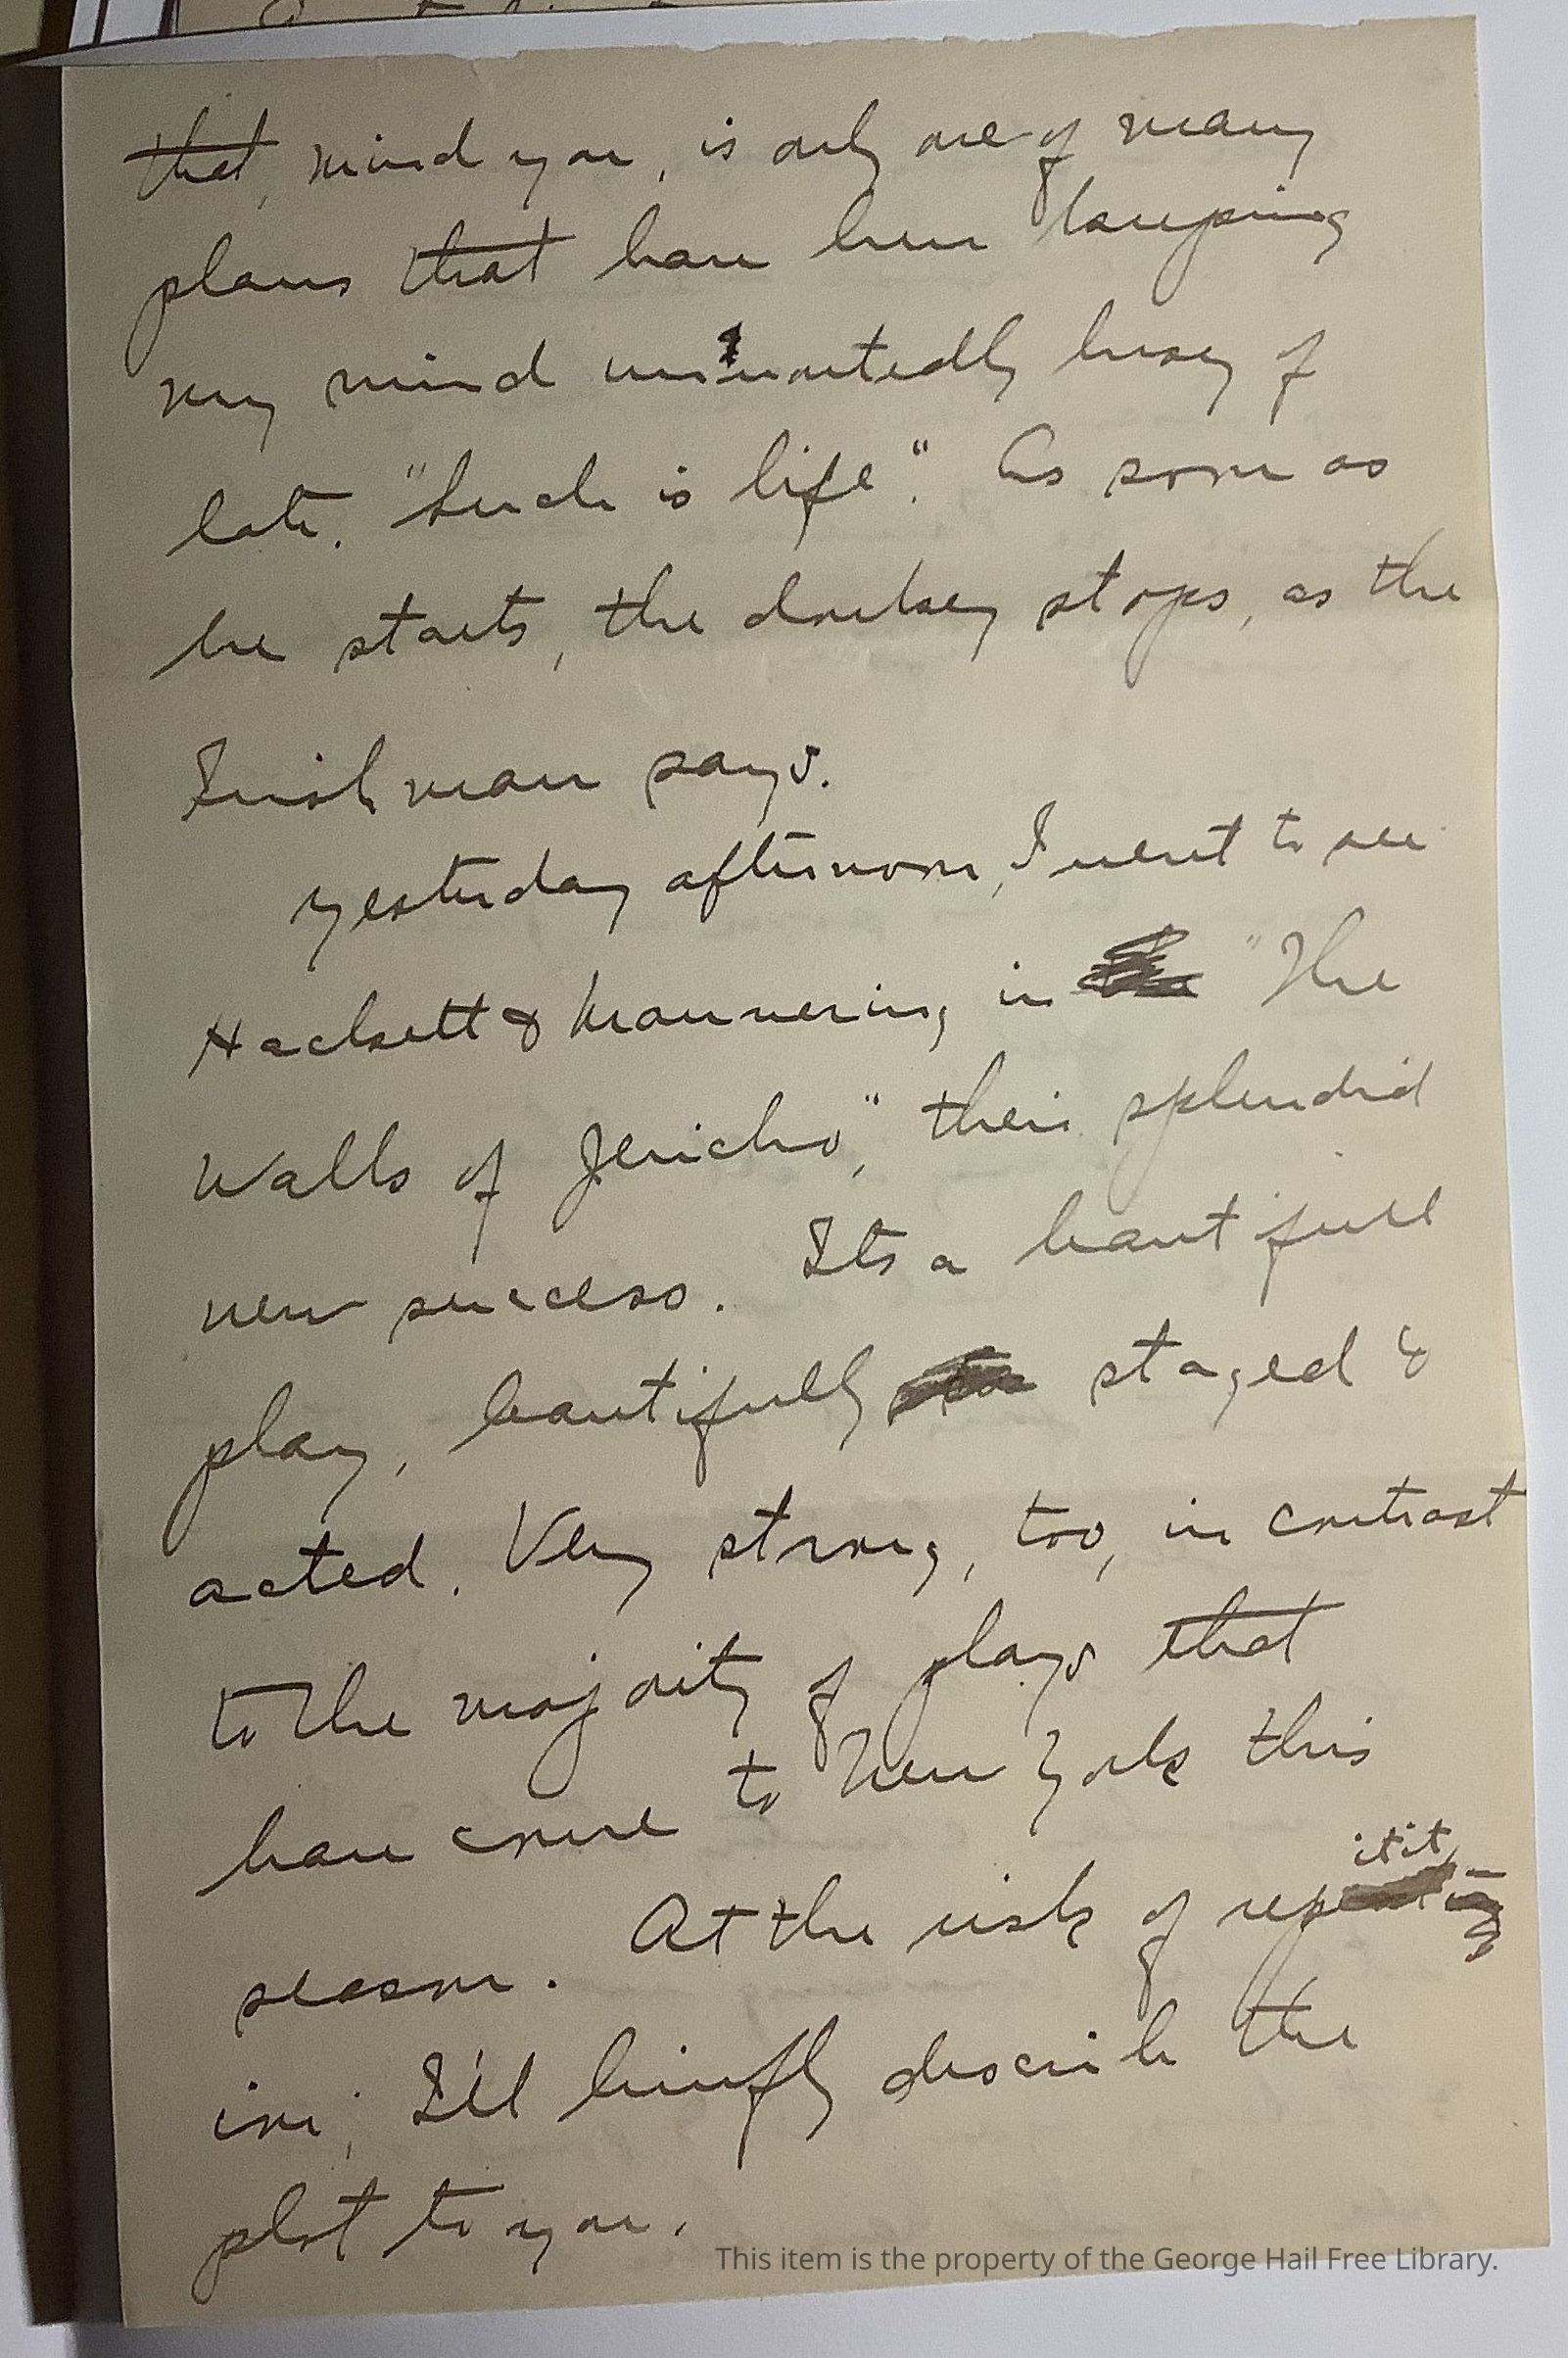 that, mind you, is only one of many
plans that have been keeping
my mind unwontedly busy of
late. "Such is life". As soon as
he starts, the donkey stops, as the
Irishman says.
yesterday afternoon, I went to see
Hackett & Mannering in "The
Walls of Jericho", their splendid
new success. Its a beautifull
play, beautifully staged &
acted. Very strong, too, in contrast
to the majority of plays that
have come to New York this
season. At the risk of repetit
ion; I'll briefly describe the
plot to you.
This item is the property of the George Hail Free Library.